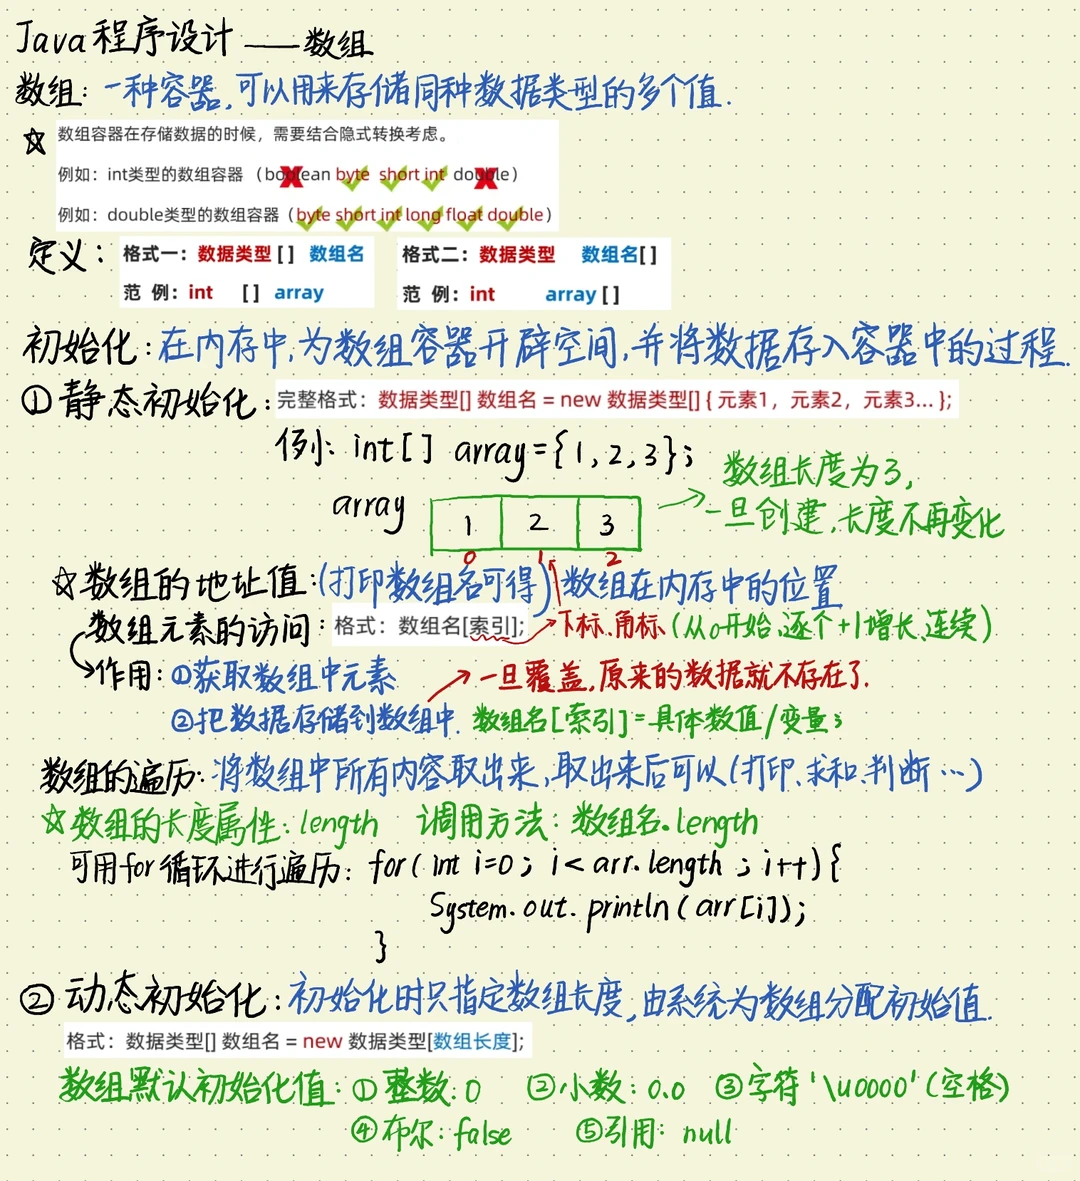 Java程序设计 —— 数组
数组: 一种容器,可以用来存储同种数据类型的多个值.
☆ 数组容器在存储数据的时候，需要结合隐式转换考虑。
例如：int类型的数组容器（boolean byte short int double）
例如：double类型的数组容器（byte short int long float double）
定义：
格式一：数据类型 [ ] 数组名
范 例：int [ ] array
格式二：数据类型 数组名[ ]
范 例：int array [ ]
初始化：在内存中,为数组容器开辟空间,并将数据存入容器中的过程.
①静态初始化：完整格式：数据类型[] 数组名 = new 数据类型[] { 元素1，元素2，元素3... };
例: int [ ] array={1,2,3};
array 1 2 3
0 1 2
数组长度为3,
一旦创建,长度不再变化
☆数组的地址值:(打印数组名可得)数组在内存中的位置
数组元素的访问：格式：数组名[索引]; 下标、角标 (从0开始,逐个+1增长,连续)
作用: ①获取数组中元素 一旦覆盖,原来的数据就不存在了.
②把数据存储到数组中. 数组名[索引]=具体数值/变量;
数组的遍历: 将数组中所有内容取出来,取出来后可以(打印、求和、判断…)
☆数组的长度属性: length 调用方法: 数组名.length
可用for循环进行遍历: for( int i=0 ; i< arr.length ; i++){
System.out.println(arr[i]);
}
②动态初始化: 初始化时只指定数组长度,由系统为数组分配初始值.
格式：数据类型[] 数组名 = new 数据类型[数组长度];
数组默认初始化值: ①整数: 0 ②小数: 0.0 ③字符'\u0000'(空格)
④布尔: false ⑤引用: null